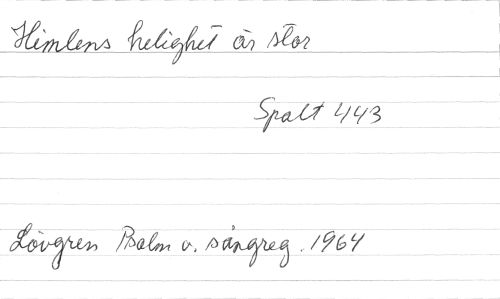 Himlens helighet är stor
Spalt 443
Lövgren Psalm o. sångreg. 1964